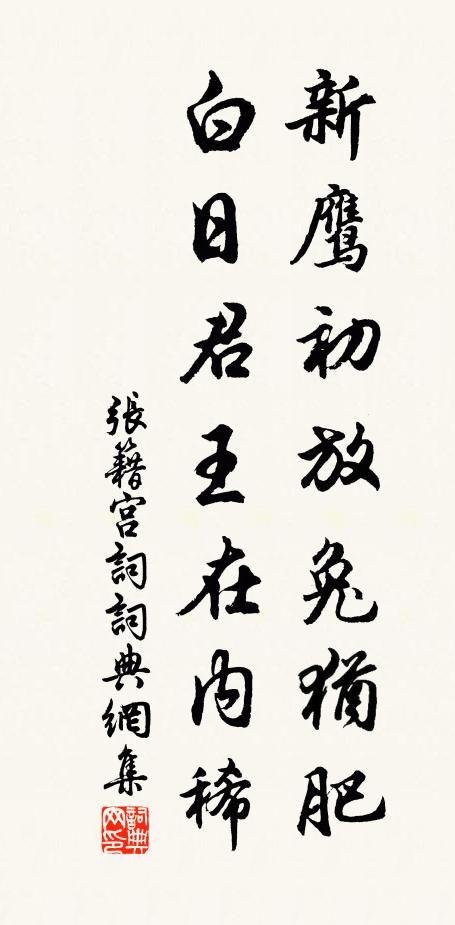 新鹰初放兔猶肥
白日君王在内稀
張籍宫詞詞典網集
詞典網印